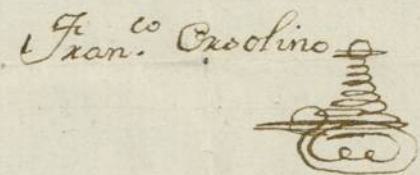 Fran.co Orsolino